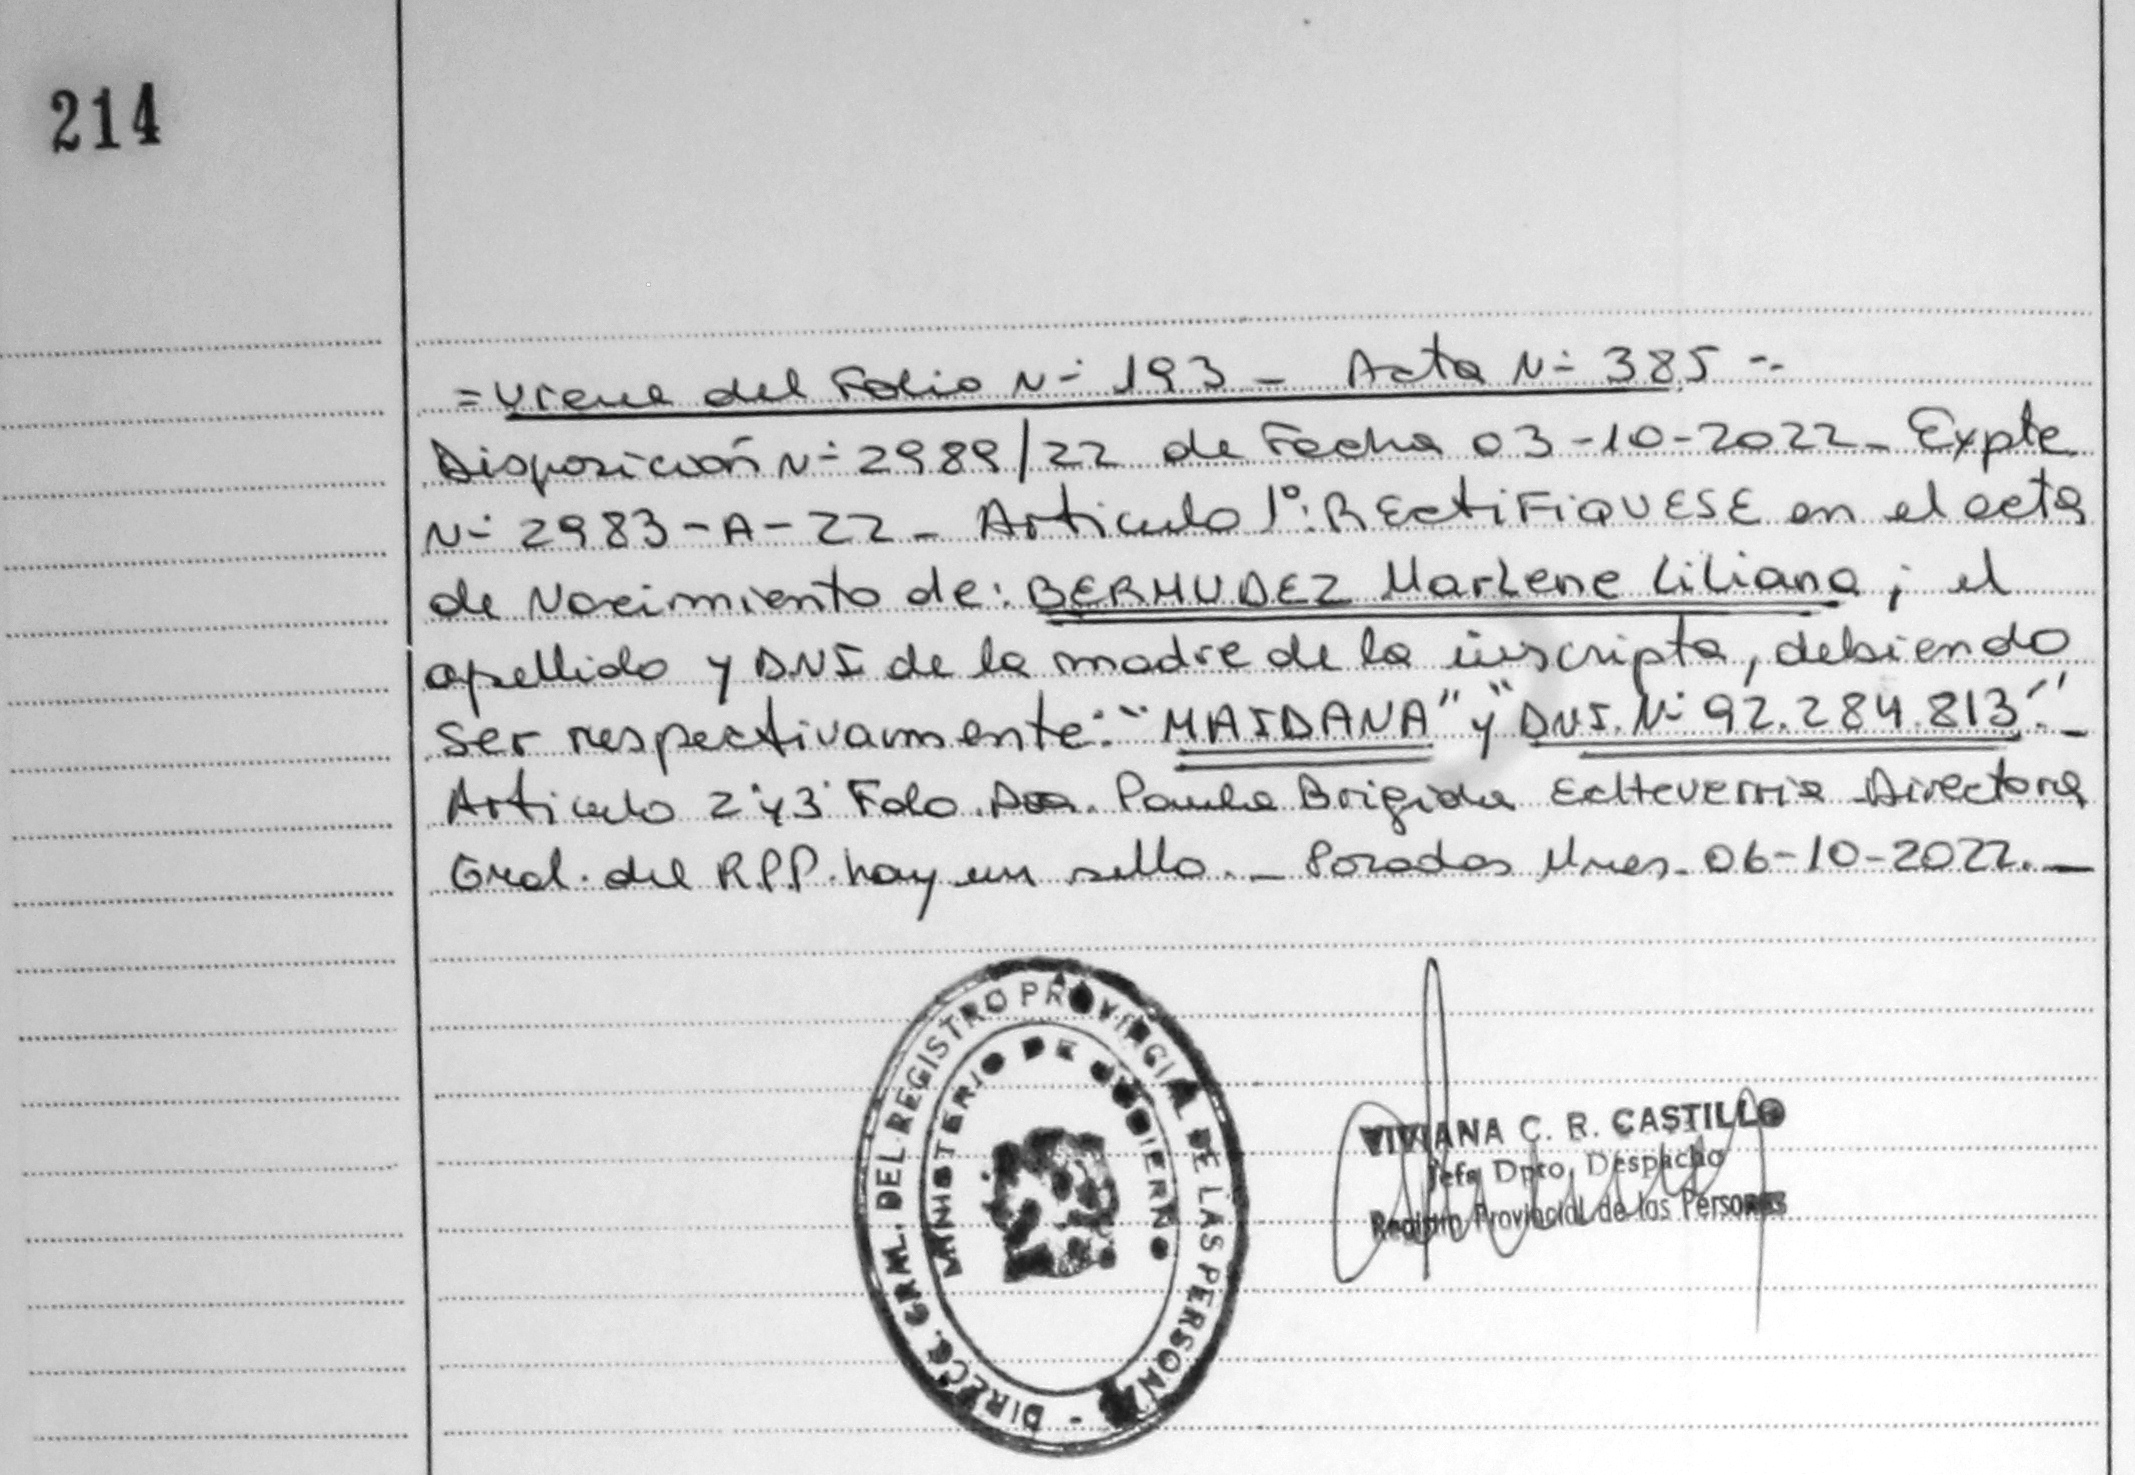 214
=Viene del Folio N- 193 - Acta N- 385 -.
Disposición N- 2989/22 de Fecha 03-10-2022_ Expte
N- 2983-A-22_ Articulo 1º: RECtiFiQUESE en el acta
de Nacimiento de: BERMUDEZ Marlene Liliana; el
apellido y DNI de la madre de la inscripta, debiendo
ser respectivamente: "MAIDANA" y "DNI. N- 92.284.813."_
Articulo 2 y 3 Fdo. Dra. Paula Brigida Echeverria Directora
Gral. del R.P.P. hay un sello._ Posadas Mnes. 06-10-2022._
DIRECC. GRAL. DEL REGISTRO PROVINCIAL DE LAS PERSONAS -
MINISTERIO DE GOBIERNO
VIVIANA C. R. CASTILLO
Jefa Dpto. Despacho
Registro Provincial de las Personas